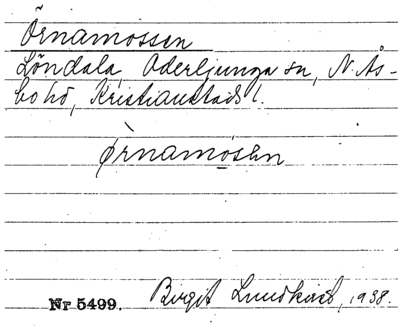 Örnamossen
Löndala, Oderljunga sn, N. Ås-
bo hd, Kristianstads l.
Örnamosen
Nr 5499. Birgit Lundkvist, 1938.